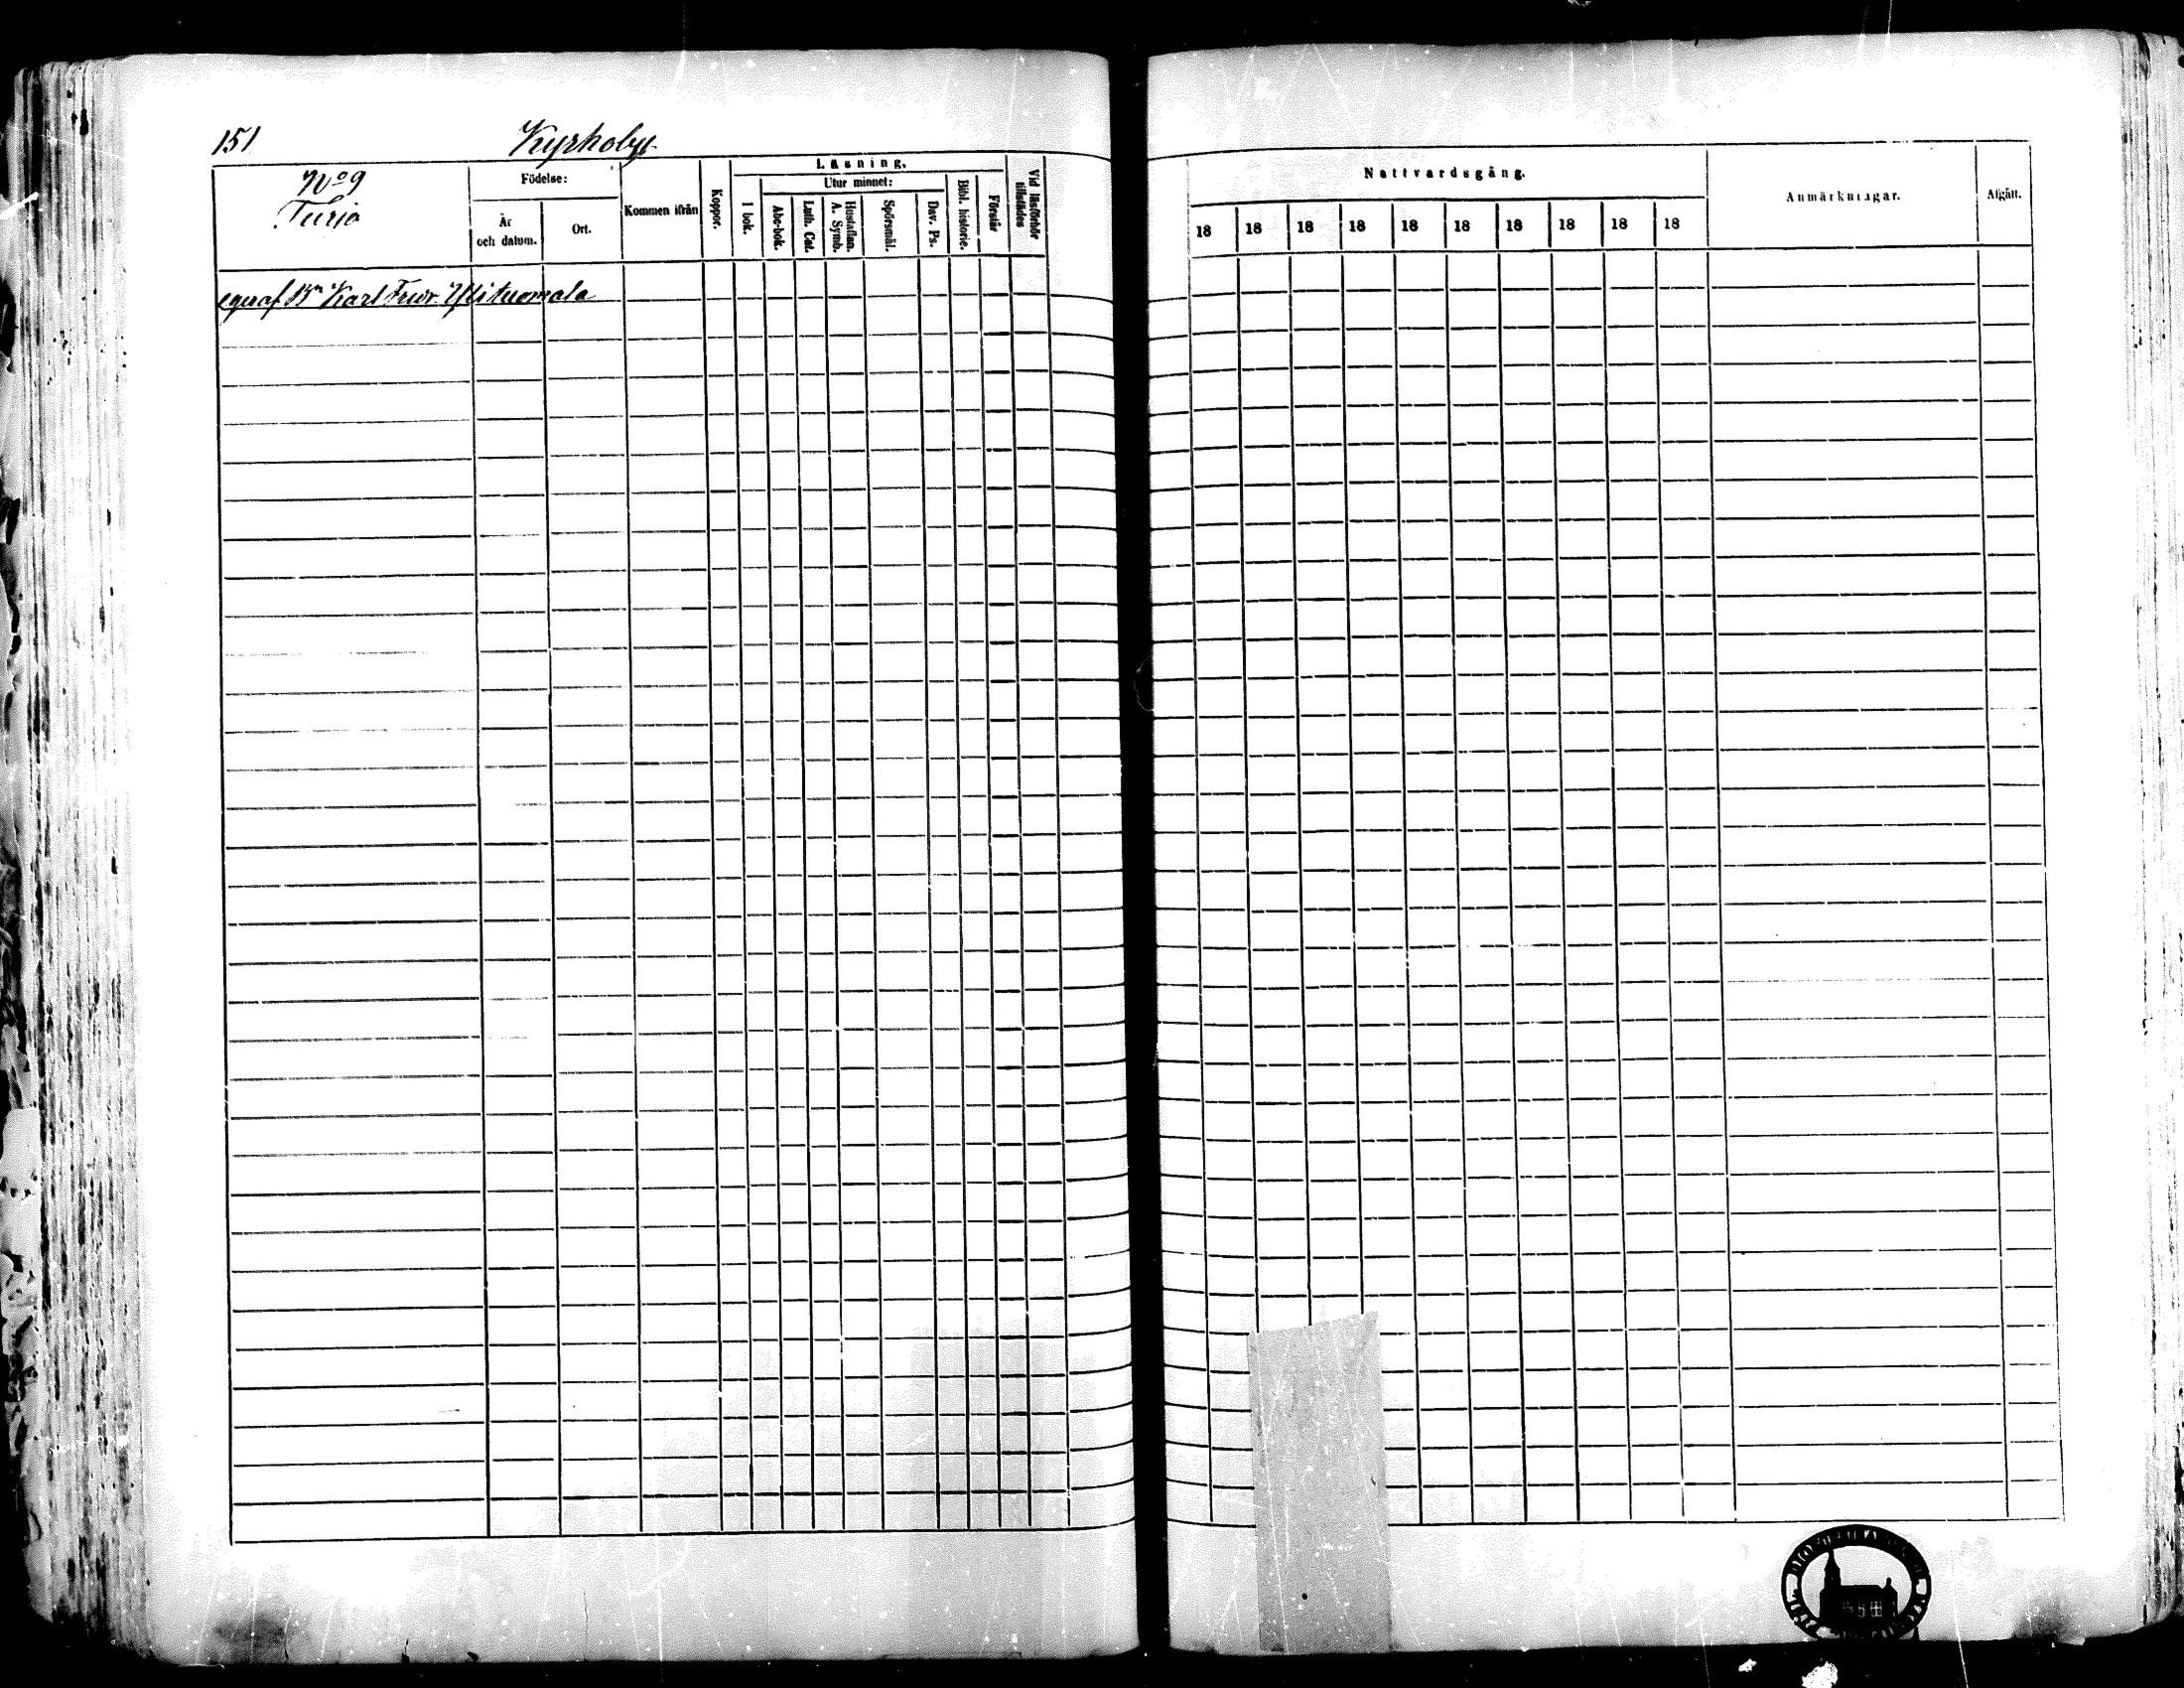 151 Kyrkoby
No 9
Turja
Födelse:
År och datum.
Ort.
Kommen ifrån
Koppor.
Läsning.
I bok.
Utur minnet:
Abc-bok.
Luth. Cat.
Hustaflan. A. Symb.
Spörsmål.
Dav. Ps.
Bibl. historie.
Förstår
Vid läsförhör tillstädes
Nattvardsgång.
18 18 18 18 18 18 18 18 18 18
Anmärkningar.
Afgått.
eges af Bn Karl Fredr. Ylituomala